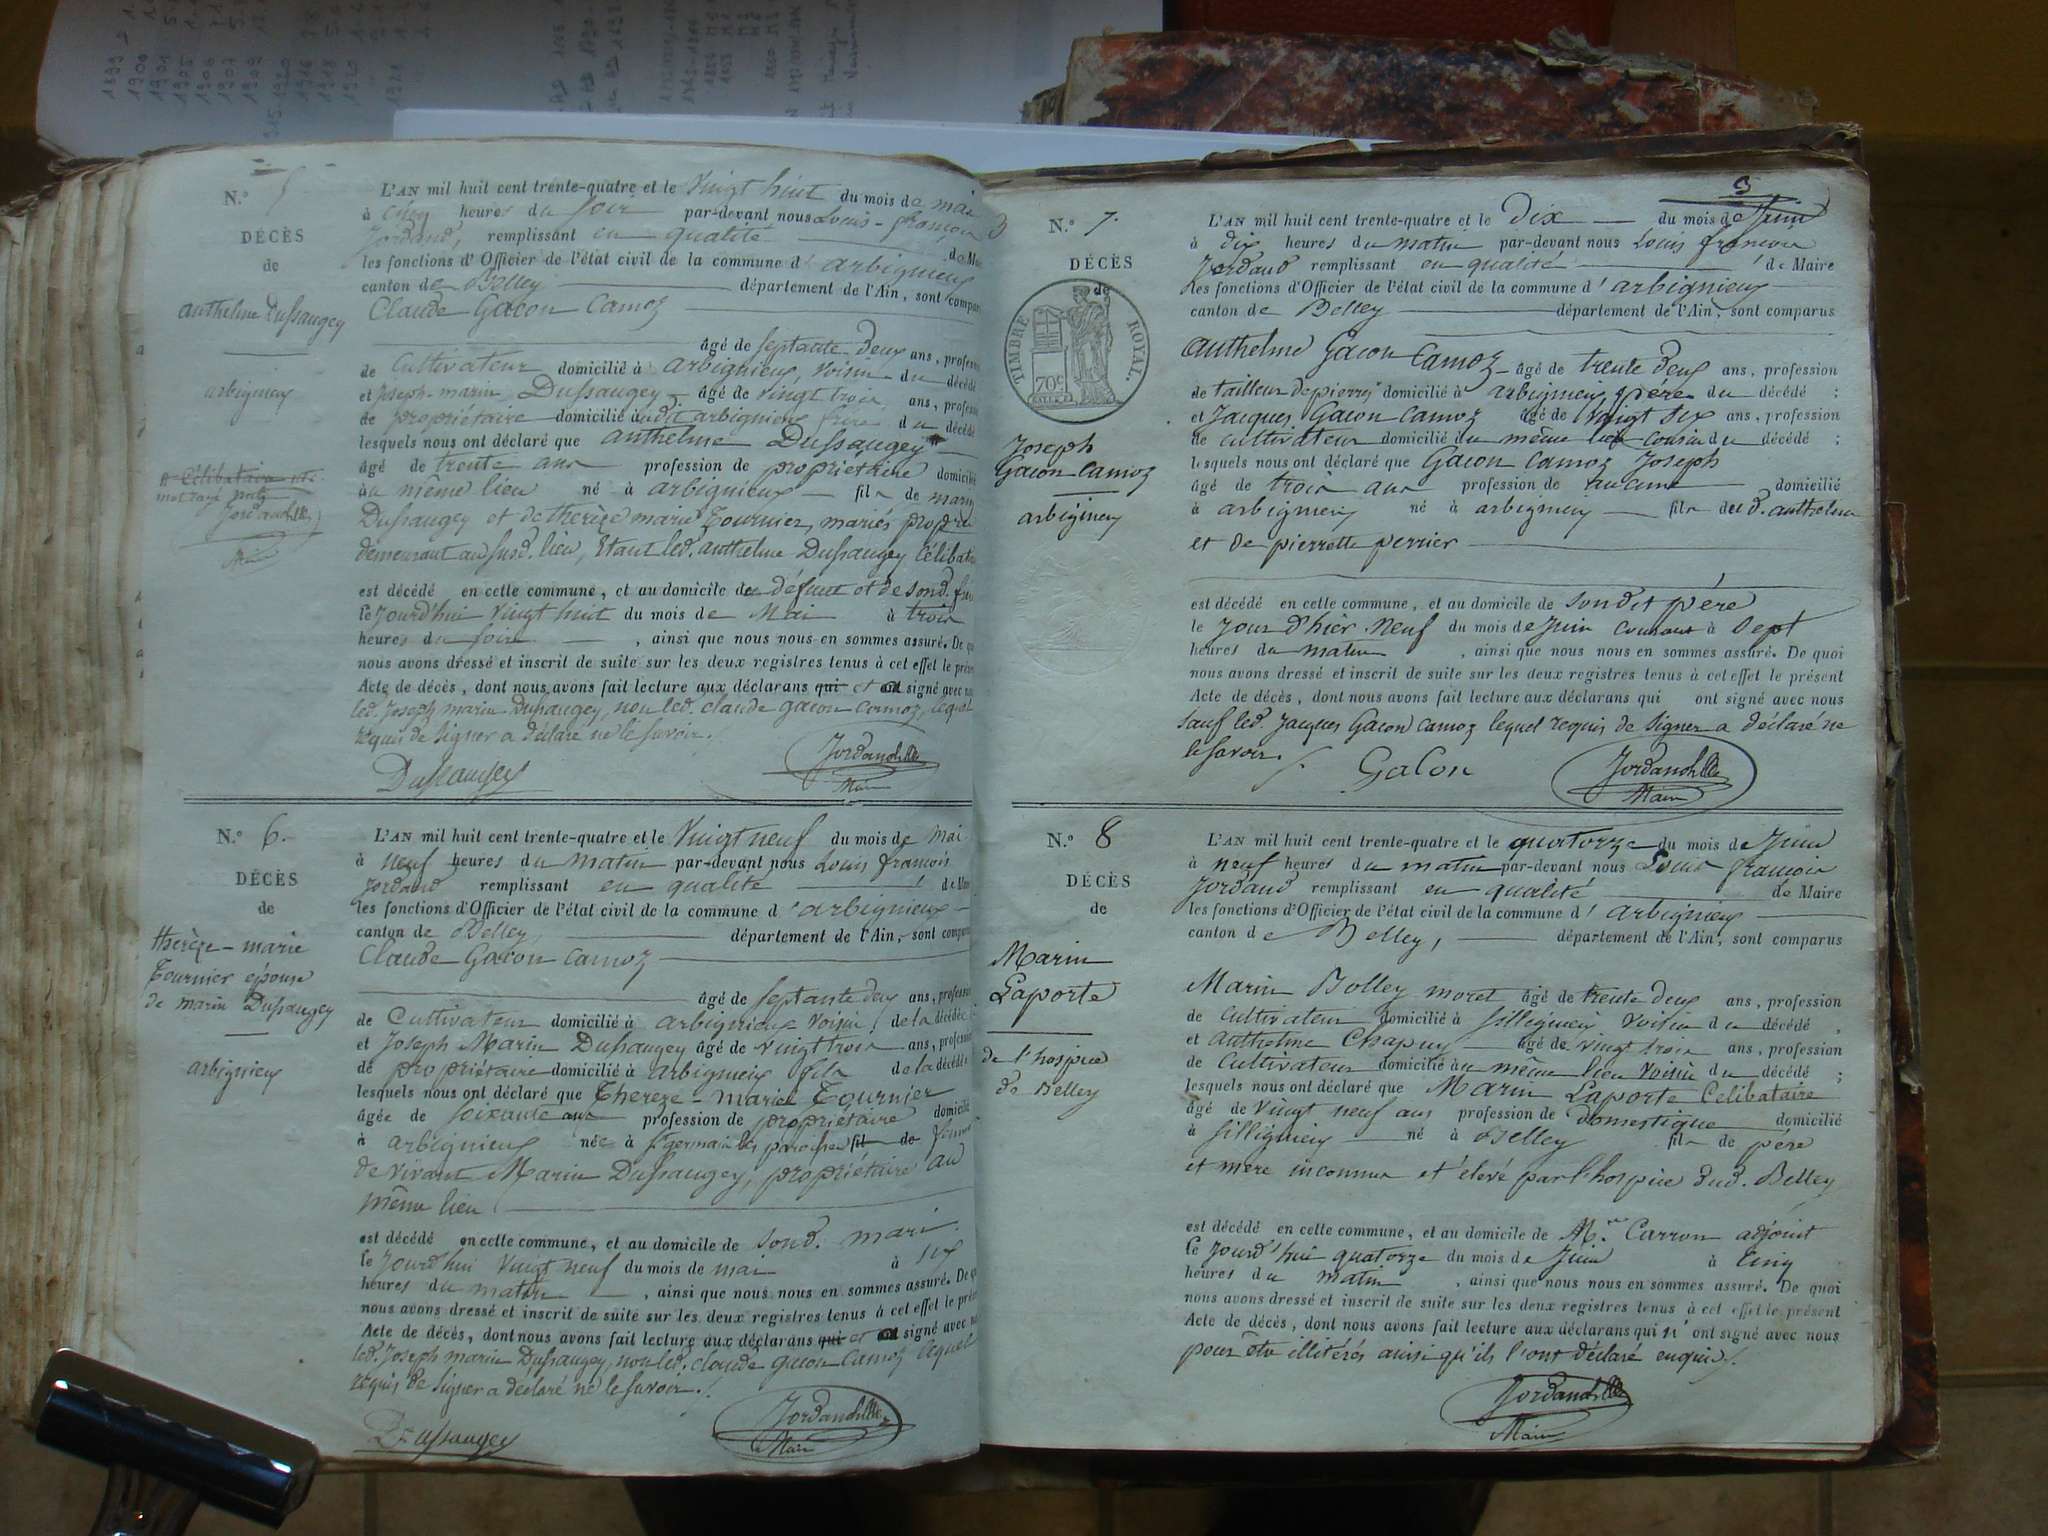 N.° 5
DÉCÈS
de
anthelme Dussaugey
arbignieu
L'AN mil huit cent trente-quatre et le vingt huit du mois de mai
à cinq heures du soir par-devant nous Louis-françois
Jordand, remplissant en qualité de Mai
les fonctions d'Officier de l'état civil de la commune d'arbignieux
canton de Belley département de l'Ain, sont compar
Claude Gacon Camoz
âgé de septante deux ans, profess
de Cultivateur domicilié à arbignieux, voisin du décédé
et joseph-marin Dussaugey âgé de vingt trois ans, profess
de propriétaire domicilié audit arbignieux frère du décédé
lesquels nous ont déclaré que anthelme Dussaugey
âgé de trente ans profession de propriétaire domicilié
au même lieu né à arbignieux fils de marin
Dussaugey et de therèze marie Tournier, mariés propr
demeurant au susd. lieu, Etant led. anthelme Dussaugey Célibat
est décédé en cette commune, et au domicile du défunt et de sond.
le jourd'hui vingt huit du mois de Mai à trois
heures du soir, ainsi que nous nous en sommes assuré. De q
nous avons dressé et inscrit de suite sur les deux registres tenus à cet effet le prés
Acte de décès, dont nous avons fait lecture aux déclarans qui et a signé avec n
led. Joseph marin Dussaugey, non led. claude gacon camoz, lequel
requis de signer a déclaré ne le savoir.
Dussaugey Jordand
Maire
N.° 6.
DÉCÈS
de
therèze-marie
Tournier épouse
de marin Dussaugey
arbignieu
L'AN mil huit cent trente-quatre et le vingt neuf du mois de mai
à neuf heures du matin par-devant nous Louis francois
Jordand remplissant en qualité de Mai
les fonctions d'Officier de l'état civil de la commune d'arbignieux
canton de Belley, département de l'Ain, sont compar
Claude Gacon Camoz
âgé de septante deux ans, profess
de Cultivateur domicilié à arbignieux voisin, de la décédée
et Joseph Marin Dussaugey âgé de vingt trois ans, profess
de propriétaire domicilié à arbignieux fils de la décédé
lesquels nous ont déclaré que Therèze-marie Tournier
âgée de soixante ans profession de propriétaire domicilié
à arbignieux née à St germain les paroisses fil de femme
de vivant Marin Dussaugey, propriétaire au
même lieu
est décédé en cette commune, et au domicile de sond. mari
le jourd'hui vingt neuf du mois de mai à six
heures du matin, ainsi que nous nous en sommes assuré. De q
nous avons dressé et inscrit de suite sur les deux registres tenus à cet effet le prés
Acte de décès, dont nous avons fait lecture aux déclarans qui et a signé avec n
led. Joseph marin Dussaugey, non led. claude gacon camoz lequel
requis de signer a déclaré ne le savoir.
Dussaugey Jordand
Maire
3
N.° 7.
DÉCÈS
de
TIMBRE ROYAL.
70c
Joseph
Gacon Camoz
arbignieu
L'AN mil huit cent trente-quatre et le Dix du mois de Juin
à dix heures du matin par-devant nous Louis francois
Jordand remplissant en qualité de Maire
les fonctions d'Officier de l'état civil de la commune d'arbignieux
canton de Belley département de l'Ain, sont comparus
Anthelme Gacon Camoz âgé de trente deux ans, profession
de tailleur de pierres domicilié à arbignieu, père du décédé ;
et Jacques Gacon Camoz âgé de vingt six ans, profession
de cultivateur domicilié du même lieu cousin du décédé ;
lesquels nous ont déclaré que Gacon Camoz Joseph
âgé de trois ans profession de aucune domicilié
à arbignieu né à arbignieu fils dud. anthelme
et de pierrette perrier
est décédé en cette commune, et au domicile de sondit père
le jour d'hier neuf du mois de juin courant à Sept
heures du matin, ainsi que nous nous en sommes assuré. De quoi
nous avons dressé et inscrit de suite sur les deux registres tenus à cet effet le présent
Acte de décès, dont nous avons fait lecture aux déclarans qui ont signé avec nous
sauf led. Jacques Gacon Camoz lequel requis de signer a déclaré ne
le savoir.
Gacon Jordand
Maire
N.° 8
DÉCÈS
de
Marin
Laporte
de l'hospice
de Belley
L'AN mil huit cent trente-quatre et le quatorze du mois de Juin
à neuf heures du matin par-devant nous Louis francois
Jordand remplissant en qualité de Maire
les fonctions d'Officier de l'état civil de la commune d'arbignieux
canton de Belley, département de l'Ain, sont comparus
Marin Bolley moret âgé de trente deux ans, profession
de cultivateur domicilié à Sillignieu voisin du décédé,
et anthelme Chapuy âgé de vingt trois ans, profession
de Cultivateur domicilié au même lieu voisin du décédé ;
lesquels nous ont déclaré que Marin Laporte Célibataire
âgé de vingt neuf ans profession de domestique domicilié
à Sillignieu né à Belley fils de père
et mère inconnus et élevé par l'hospice dud. Belley
est décédé en cette commune, et au domicile de Mr. Carron adjoint
le jourd'hui quatorze du mois de Juin à Cinq
heures du matin, ainsi que nous nous en sommes assuré. De quoi
nous avons dressé et inscrit de suite sur les deux registres tenus à cet effet le présent
Acte de décès, dont nous avons fait lecture aux déclarans qui n'ont signé avec nous
pour être illitérés ainsi qu'ils l'ont déclaré enquis.
Jordand
Maire